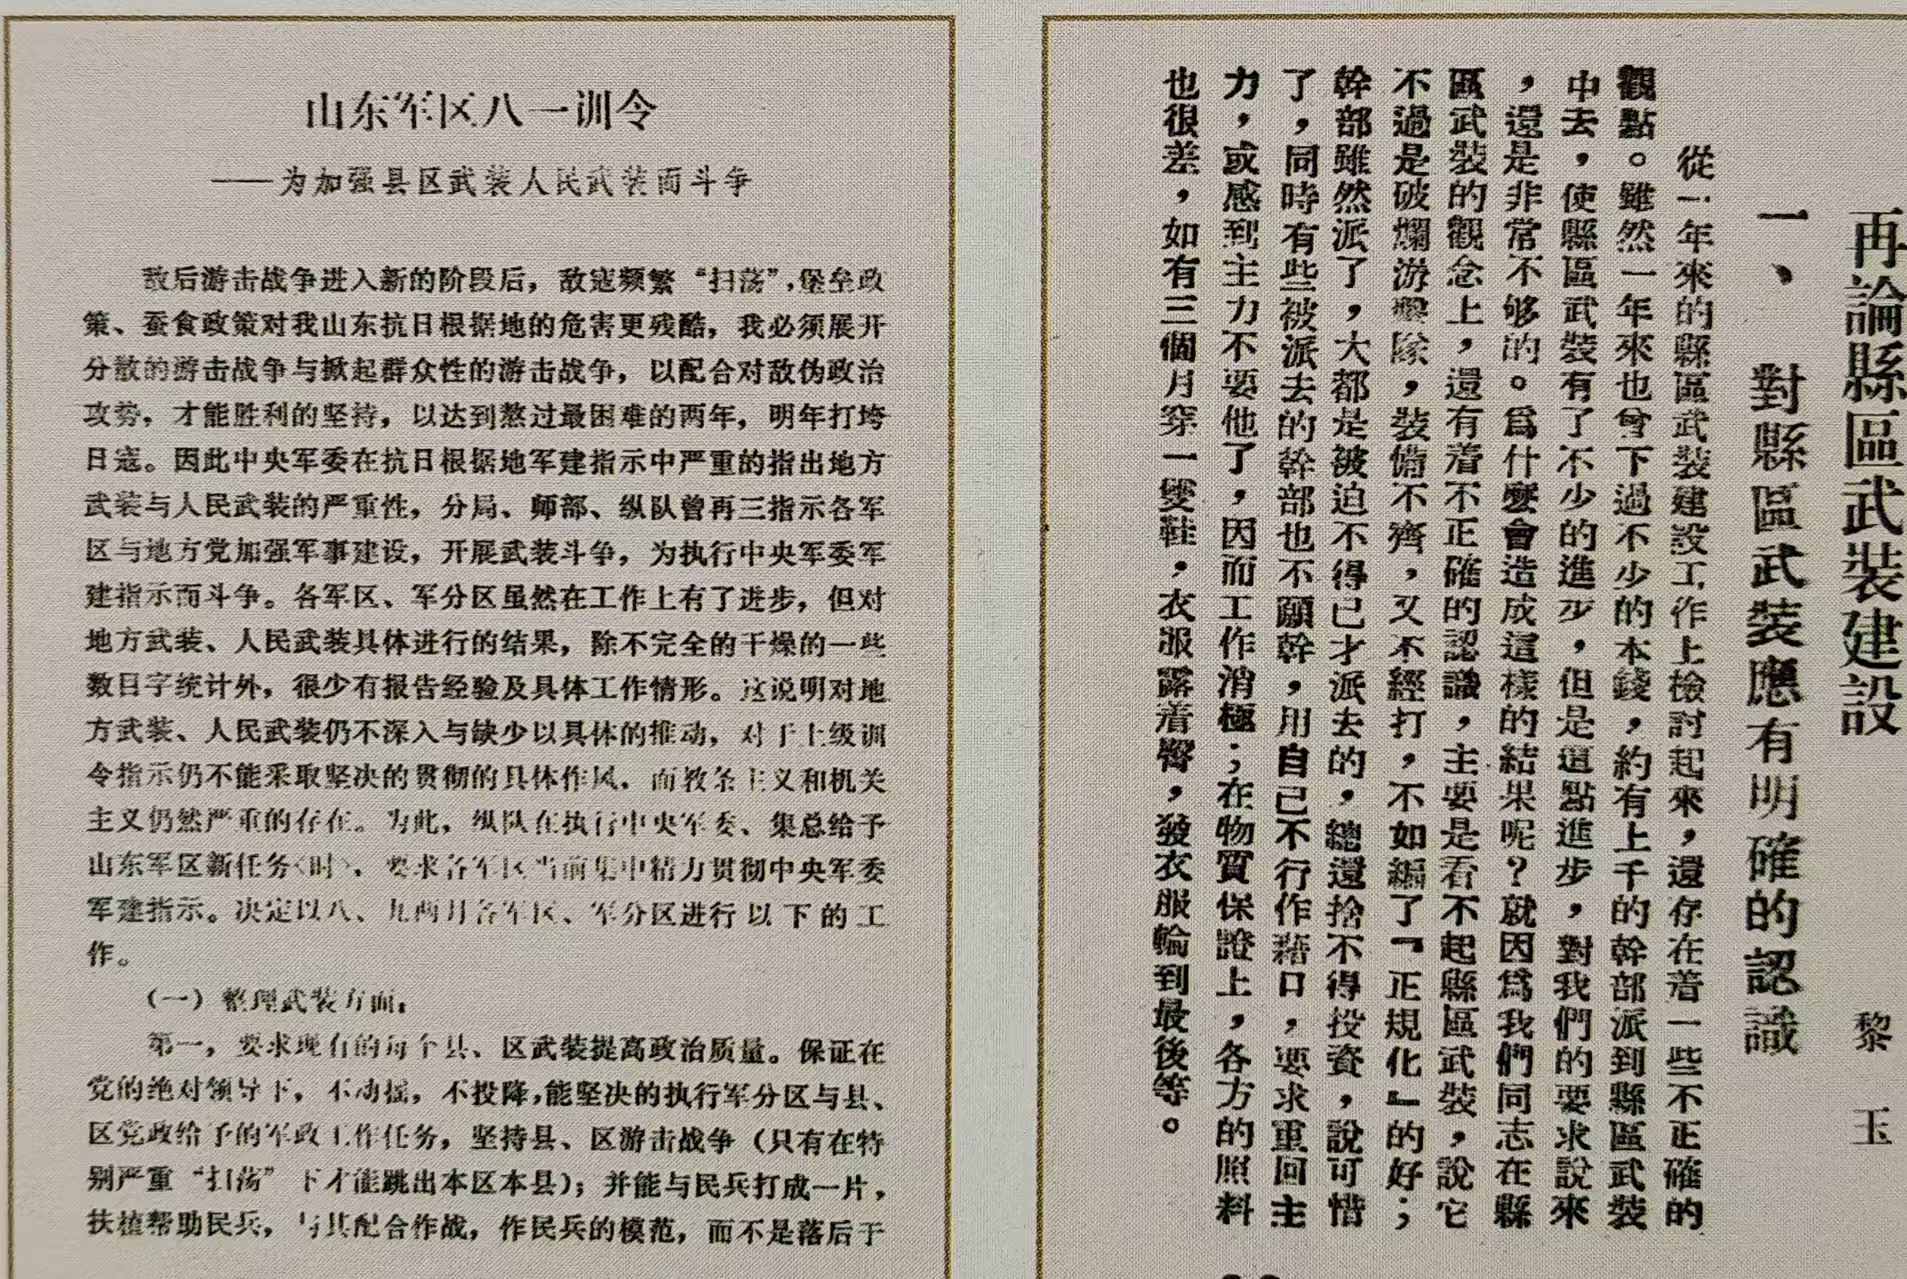 山东军区八一训令
——为加强县区武装人民武装而斗争
敌后游击战争进入新的阶段后，敌寇频繁“扫荡”，堡垒政
策、蚕食政策对我山东抗日根据地的危害更残酷，我必须展开
分散的游击战争与掀起群众性的游击战争，以配合对敌伪政治
攻势，才能胜利的坚持，以达到熬过最困难的两年，明年打垮
日寇。因此中央军委在抗日根据地军建指示中严重的指出地方
武装与人民武装的严重性，分局、师部、纵队曾再三指示各军
区与地方党加强军事建设，开展武装斗争，为执行中央军委军
建指示而斗争。各军区、军分区虽然在工作上有了进步，但对
地方武装、人民武装具体进行的结果，除不完全的干燥的一些
数目字统计外，很少有报告经验及具体工作情形。这说明对地
方武装、人民武装仍不深入与缺少以具体的推动，对于上级训
令指示仍不能采取坚决的贯彻的具体作风，而教条主义和机关
主义仍然严重的存在。为此，纵队在执行中央军委、集总给予
山东军区新任务〈时〉，要求各军区当前集中精力贯彻中央军委
军建指示。决定以八、九两月各军区、军分区进行以下的工
作。
（一）整理武装方面：
第一，要求现有的每个县、区武装提高政治质量。保证在
党的绝对领导下，不动摇，不投降，能坚决的执行军分区与县、
区党政给予的军政工作任务，坚持县、区游击战争（只有在特
别严重“扫荡”下才能跳出本区本县）；并能与民兵打成一片，
扶植帮助民兵，与其配合作战，作民兵的模范，而不是落后于
再論縣區武裝建設
黎玉
一、對縣區武裝應有明確的認識
從一年來的縣區武裝建設工作上檢討起來，還存在着一些不正確的
觀點。雖然一年來也曾下過不少的本錢，約有上千的幹部派到縣區武裝
中去，使縣區武裝有了不少的進步，但是這點進步，對我們的要求說來
，還是非常不够的。爲什麽會造成這樣的結果呢？就因爲我們同志在縣
區武裝的觀念上，還有着不正確的認識，主要是看不起縣區武裝，說它
不過是破爛游擊隊，裝備不齊，又不經打，不如編了『正規化』的好；
幹部雖然派了，大都是被迫不得已才派去的，總還捨不得投資，說可惜
了，同時有些被派去的幹部也不願幹，用自己不行作藉口，要求重回主
力，或感到主力不要他了，因而工作消極；在物質保證上，各方的照料
也很差，如有三個月穿一雙鞋，衣服露着臀，發衣服輪到最後等。